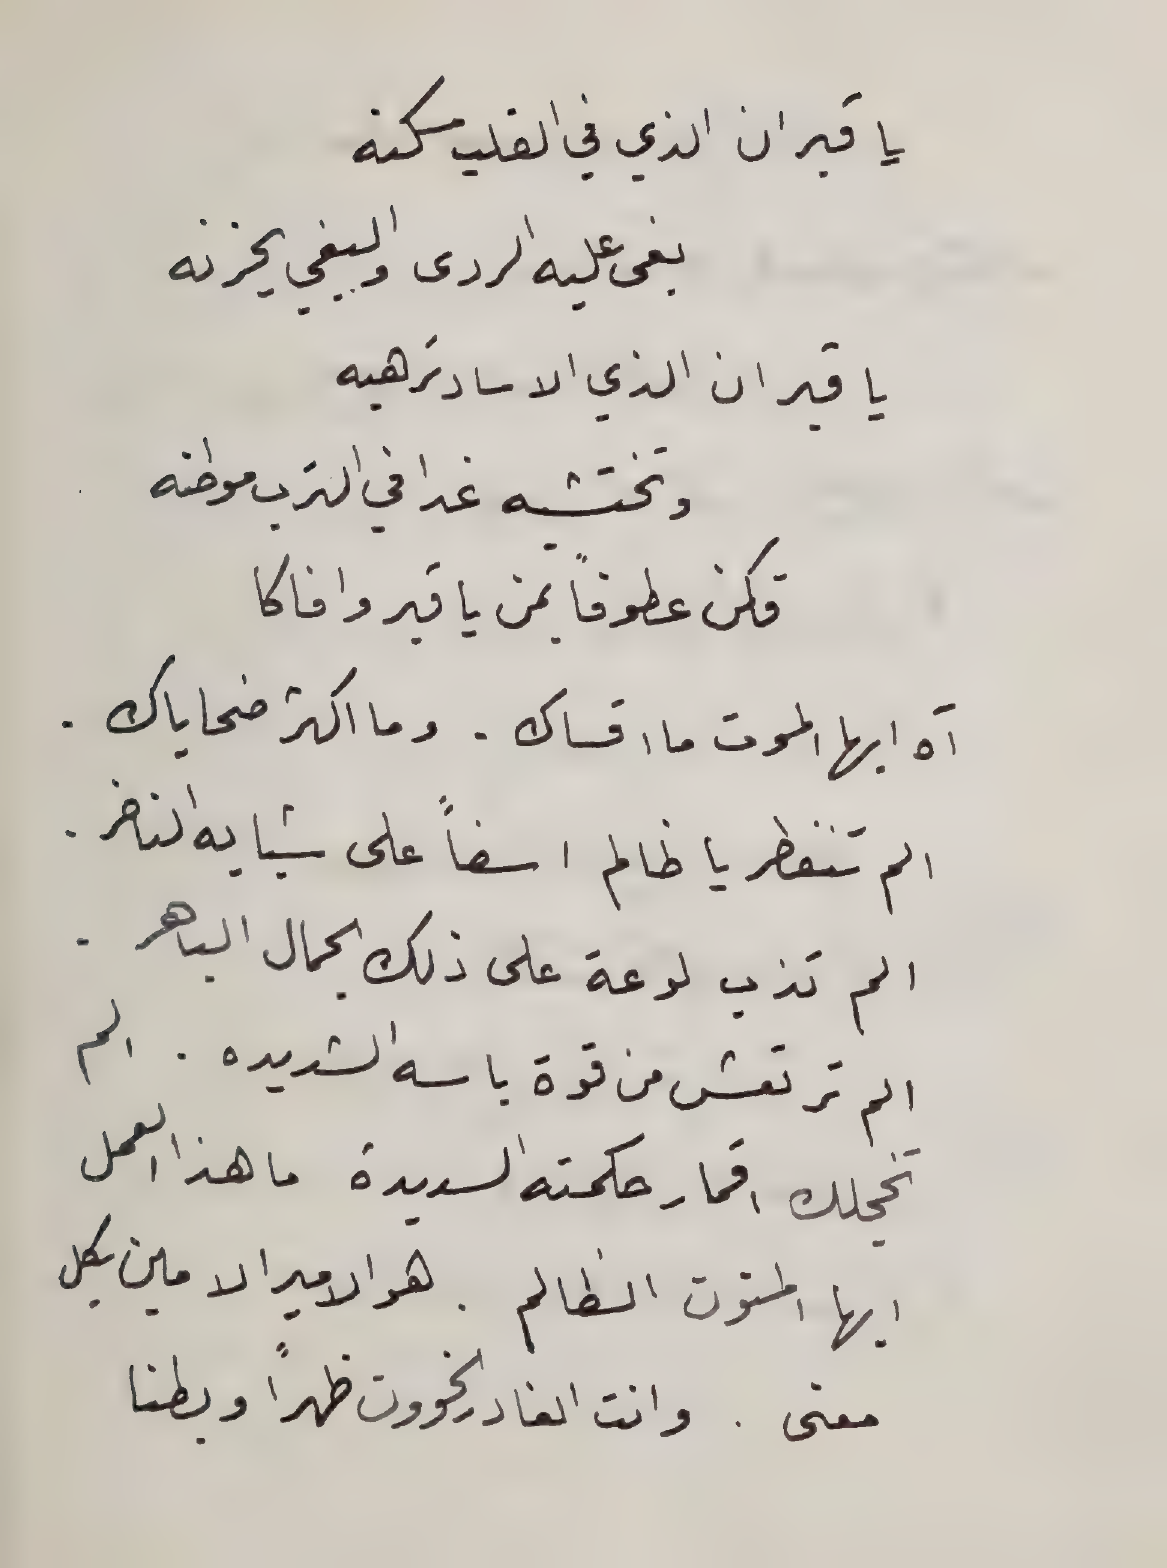 يا قبر ان الذي في القلب مسكنه
بغى عليه الردى والبغي يحزنه
يا قبر ان الذي الاساد ترهبه
وتختشيه غدا في الترب موطنه
فكن عطوفاً بمن يا قبر وافاكا
آه ايها الموت ما اقساك . وما اكثر ضحاياك .
الم تنفطر يا ظالم اسفاً على شبابه الناضر .
الم تذب لوعة على ذلك الجمال الباهر .
الم ترتعش من قوة باسه الشديده . الم
تخجلك اقمار حكمته السديدة ما هذا العمل
ايها الظالم . هو الامير الامين بكل
معنى . وانت الغادر الخوون ظهراً وبطنا